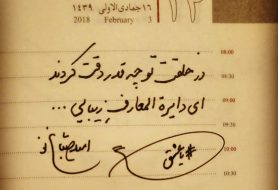 ۱۶ جمادی الاولی ۱۴۳۹
2018 February 3
08:00
در خلقت تو چه قدر دقت کردند
08:30
ای دایرة المعارف زیبایی ...
09:00
09:30
#عاشق
10:00
10:30